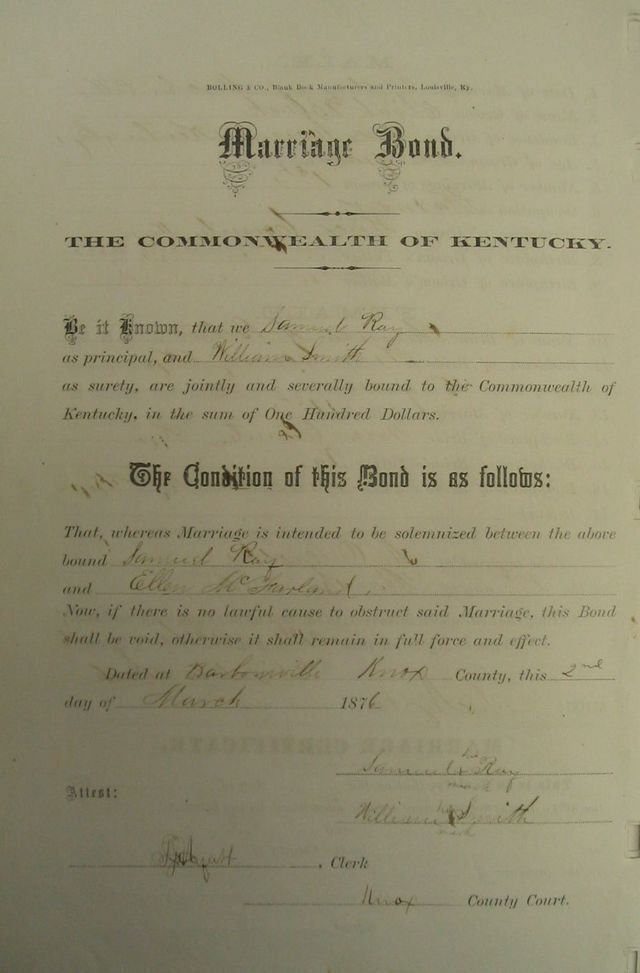 BOLLING & CO., Blank Book Manufacturers and Printers, Louisville, Ky.
Marriage Bond.
THE COMMONWEALTH OF KENTUCKY.
Be it Known, that we Samuel Ray
as principal, and William Smith
as surety, are jointly and severally bound to the Commonwealth of
Kentucky, in the sum of One Hundred Dollars.
The Condition of this Bond is as follows:
That, whereas Marriage is intended to be solemnized between the above
bound Samuel Ray
and Ellen McFarland.
Now, if there is no lawful cause to obstruct said Marriage, this Bond
shall be void, otherwise it shall remain in full force and effect.
Dated at Barbourville Knox County, this 2nd
day of March 1876
his
Samuel x Ray
mark
Attest:
his
William x Smith
mark
, Clerk
Knox County Court.